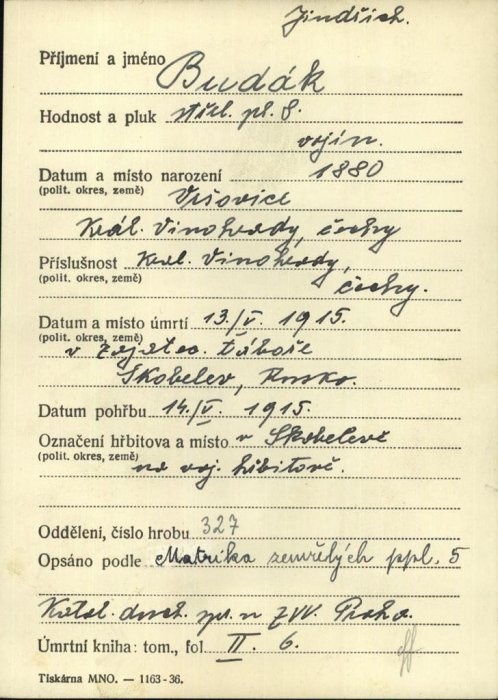 Jindřich.
Příjmení a jméno Budák
Hodnost a pluk střel. pl. 8.
vojín.
Datum a místo narození 1880
(polit. okres, země) Vršovice
Král. Vinohrady, čechy
Příslušnost Král. Vinohrady,
(polit. okres, země) čechy.
Datum a místo úmrtí 13./V. 1915.
(polit. okres, země) v zajatec. táboře
Skobelev, Rusko.
Datum pohřbu 14./V. 1915.
Označení hřbitova a místo v Skobelevě
(polit. okres, země) na voj. hřbitově.
Oddělení, číslo hrobu 327
Opsáno podle Matrika zemřelých ppl. 5
Katol. duch. spr. u ZVV. Praha.
Úmrtní kniha: tom., fol II. 6.
Tiskárna MNO. — 1163-36.